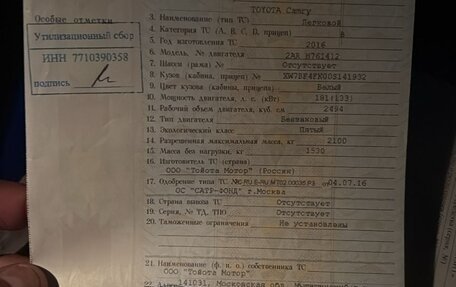 TOYOTA Camry
Особые отметки
Утилизационный сбор
ИНН 7710390358
подпись
3. Наименование (тип ТС) Легковой
4. Категория ТС (А, В, С, D, прицеп) В
5. Год изготовления ТС 2016
6. Модель, № двигателя 2AR H761412
7. Шасси (рама) № Отсутствует
8. Кузов (кабина, прицеп) № XW7BF4FK00S141932
9. Цвет кузова (кабины, прицепа) Белый
10. Мощность двигателя, л. с. (кВт) 181(133)
11. Рабочий объем двигателя, куб. см 2494
12. Тип двигателя Бензиновый
13. Экологический класс Пятый
14. Разрешенная максимальная масса, кг 2100
15. Масса без нагрузки, кг 1530
16. Изготовитель ТС (страна)
ООО "Тойота Мотор" (Россия)
17. Одобрение типа ТС № от 04.07.16
ОС "САТР-ФОНД" г.Москва
18. Страна вывоза ТС Отсутствует
19. Серия, № ТД, ТПО Отсутствует
20. Таможенные ограничения Не установлены
21. Наименование (ф. и. о.) собственника ТС
ООО "Тойота Мотор"
22. 141031, Московская обл.